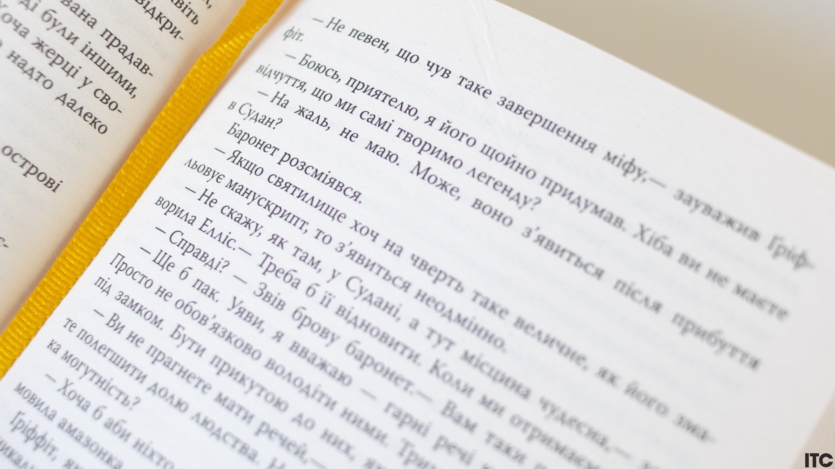 відкри-
вана прадав-
ді були іншими,
оча жерці у сво-
надто далеко
острові
— Не певен, що чув таке завершення міфу,— зауважив Ґріф-
фіт.
— Боюсь, приятелю, я його щойно придумав. Хіба ви не маєте
відчуття, що ми самі творимо легенду?
— На жаль, не маю. Може, воно з’явиться після прибуття
в Судан?
Баронет розсміявся.
— Якщо святилище хоч на чверть таке величне, як його зма-
льовує манускрипт, то з’явиться неодмінно.
— Не скажу, як там, у Судані, а тут місцина чудесна,—
ворила Елліс.— Треба б її відновити. Коли ми отримаєм
— Справді? — Звів брову баронет.— Вам таки
— Ще б пак. Уяви, я вважаю — гарні речі
Просто не обов’язково володіти ними.
під замком. Бути прикутою до них,
— Ви не прагнете мати речей,—
те полегшити долю людства.
ка могутність?
— Хоча б аби ніхто
мовила амазонка
Ґріффіт,
ITC